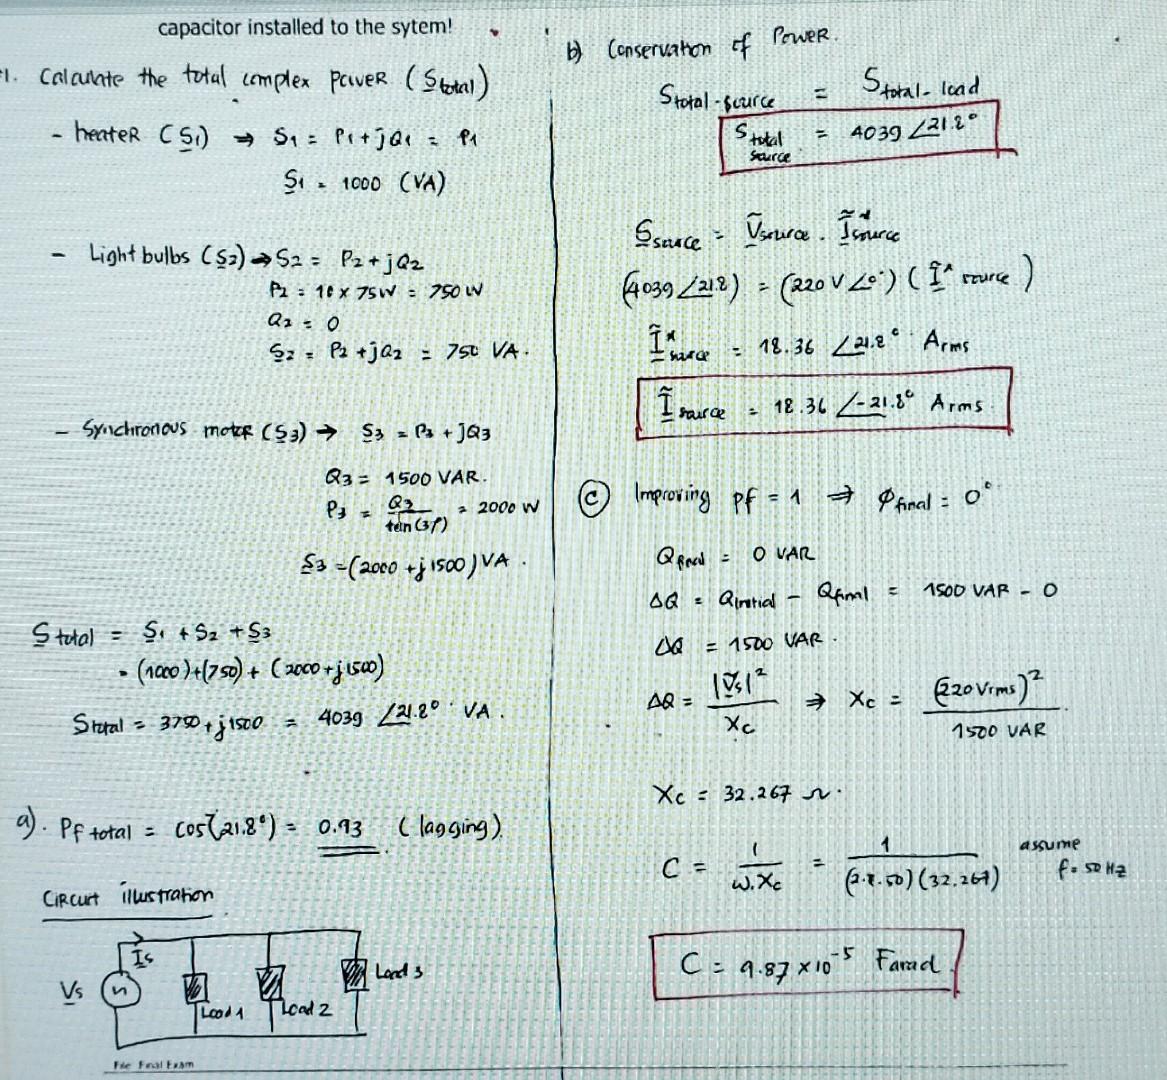 capacitor installed to the sytem!
1. Calculate the total complex power (S total)
- heater (S1) ⇒ S1 = P1 + jQ1 = P1
S1 = 1000 (VA)
- Light bulbs (S2) → S2 = P2 + jQ2
P2 = 10 x 75W = 750 W
Q2 = 0
S2 = P2 + jQ2 = 750 VA.
- Synchronous motor (S3) → S3 = P3 + jQ3
Q3 = 1500 VAR.
P3 = Q3 / tan(37) = 2000 W
S3 = (2000 + j1500) VA.
S total = S1 + S2 + S3
= (1000) + (750) + (2000 + j1500)
S total = 3750 + j1500 = 4039 ∠21.8° VA.
a). Pf total = cos(21.8°) = 0.93 (lagging).
Circuit illustration
Is
Vs
Load 1
Load 2
Load 3
File Final Exam
b) Conservation of Power.
S total-source = S total-load
S total source = 4039 ∠21.8°
S source = Ṽ source . Ĩ* source
(4039 ∠21.8) = (220 V ∠0°) (Ĩ* source)
Ĩ* source = 18.36 ∠21.8° Arms
Ĩ source = 18.36 ∠-21.8° Arms.
(C) Improving pf = 1 ⇒ φ final = 0°.
Q final = 0 VAR
ΔQ = Q initial - Q final = 1500 VAR - 0
ΔQ = 1500 VAR.
ΔQ = |Ṽs|² / Xc ⇒ Xc = (220 Vrms)² / 1500 VAR.
Xc = 32.267 Ω.
C = 1 / ω.Xc = 1 / (2.π.50)(32.267) assume f = 50 Hz
C = 9.87 x 10⁻⁵ Farad.